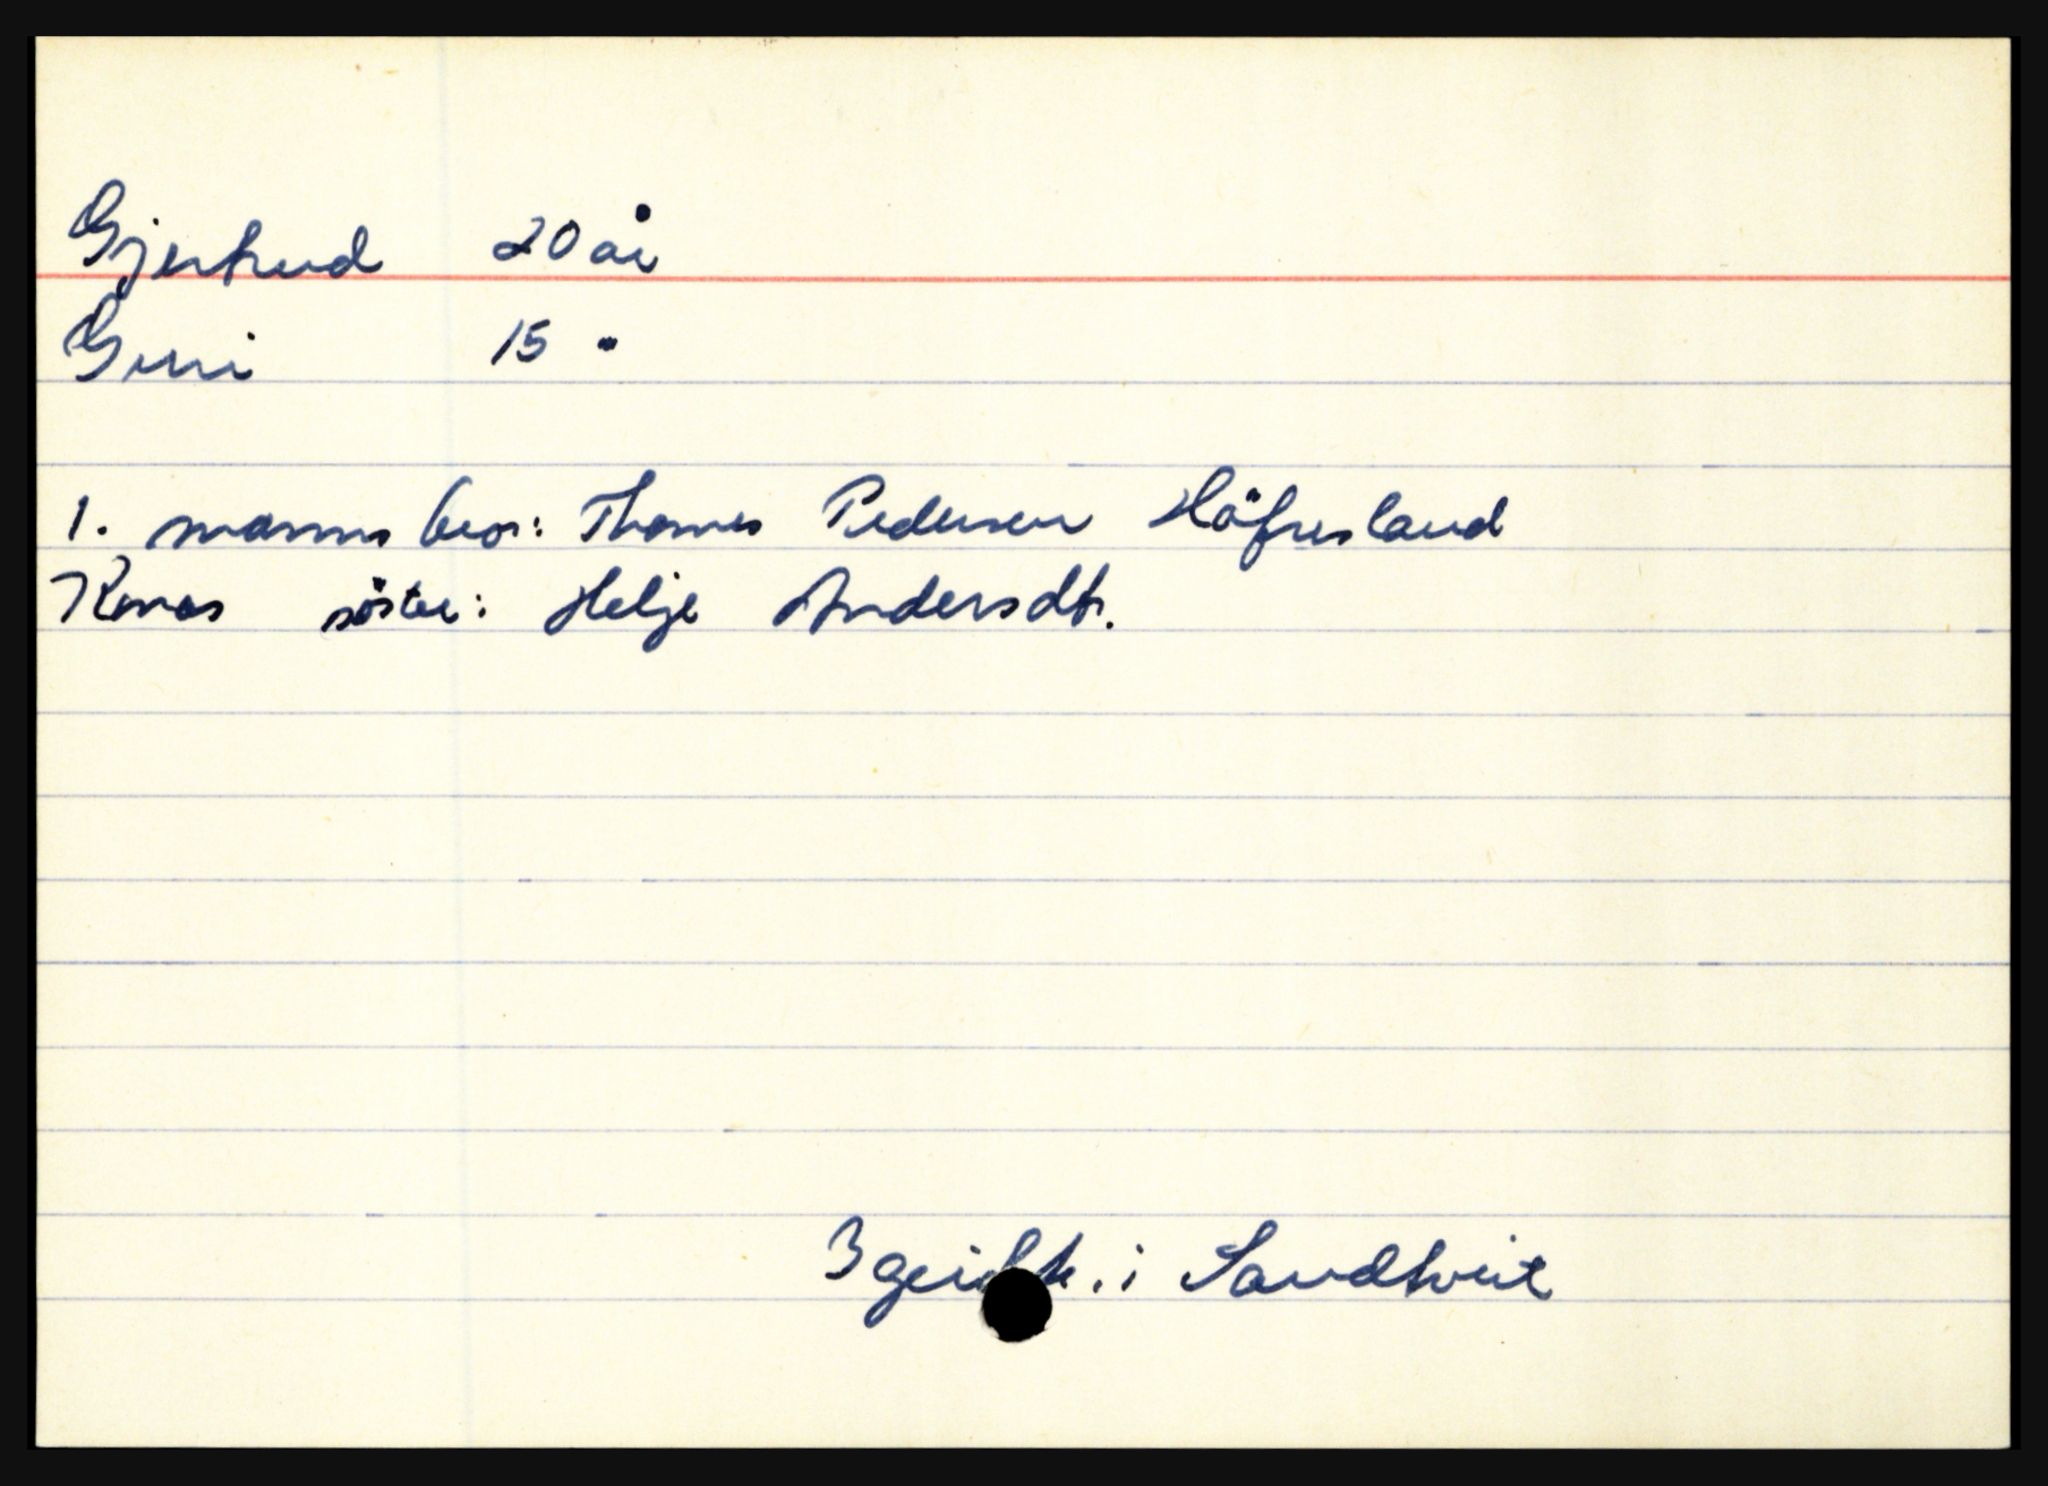 Gjertrud 20 år
Guri 15 "
1. manns bror: Thomes Pedersen Höfresland
Konas söster: Helje Andersdtr.
i Sandtveit